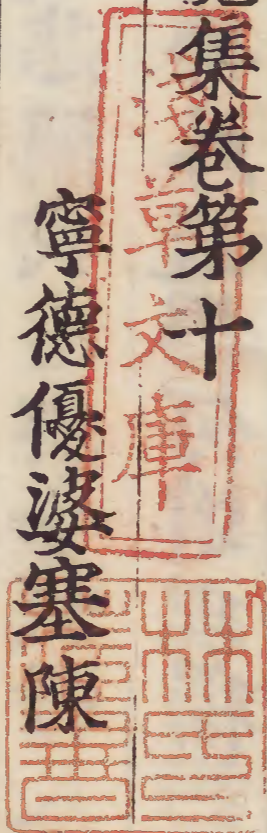 集卷第十
寧德優婆塞陳
淺草文庫